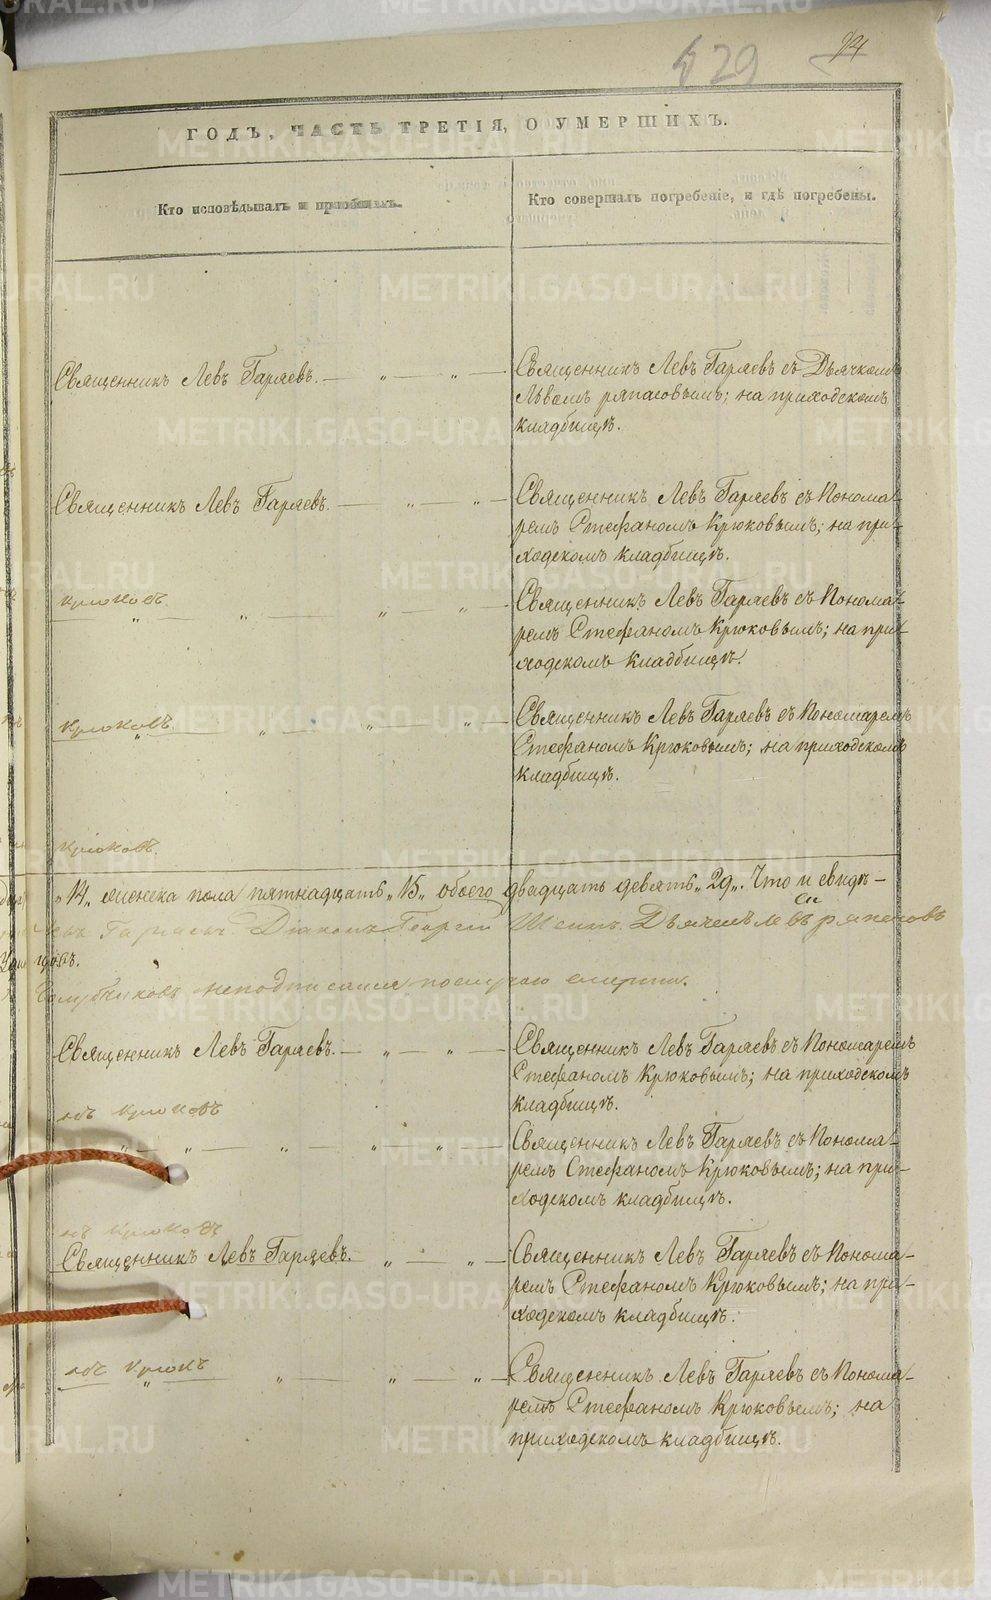 529
94
ГОДЪ, ЧАСТЬ ТРЕТІЯ, О УМЕРШИХЪ.
Кто исповѣдывалъ и пріобщалъ.
Кто совершалъ погребеніе, и гдѣ погребены.
Священникъ Левъ Гаряевъ. — „ — „ —
Священникъ Левъ Гаряевъ съ Дьячкомъ
Львомъ ряпасовымъ; на приходскомъ
кладбищѣ.
Священникъ Левъ Гаряевъ. — „ — „ —
Священникъ Левъ Гаряевъ съ Понома-
ремъ Стефаномъ Крюковымъ; на при-
ходскомъ кладбищѣ.
Крюковъ.
— „ — „ — „ — „ —
Священникъ Левъ Гаряевъ съ Понома-
ремъ Стефаномъ Крюковымъ; на при-
ходскомъ кладбищѣ.
Крюковъ.
— „ — „ — „ — „ —
Священникъ Левъ Гаряевъ съ Пономаремъ
Стефаномъ Крюковымъ; на приходскомъ
кладбищѣ.
Крюковъ.
„14„ женска пола пятнадцать „15„ обоего двадцать девять „29„. Что и свидѣ-
Гаряевъ. Діаконъ Георгій Дьячекъ Левъ ряпасовъ
непод писался послучаю смерти.
Священникъ Левъ Гаряевъ. — „ — „ —
Священникъ Левъ Гаряевъ съ Пономаремъ
Стефаномъ Крюковымъ; на приходскомъ
кладбищѣ.
Крюковъ
— „ — „ — „ — „ — „ —
Священникъ Левъ Гаряевъ съ Понома-
ремъ Стефаномъ Крюковымъ; на при-
ходскомъ кладбищѣ.
Крюковъ
Священникъ Левъ Гаряевъ. — „ — „ —
Священникъ Левъ Гаряевъ съ Понома-
ремъ Стефаномъ Крюковымъ; на при-
ходскомъ кладбищѣ.
Крюкъ
— „ — „ — „ — „ —
Священникъ Левъ Гаряевъ съ Понома-
ремъ Стефаномъ Крюковымъ; на
приходскомъ кладбищѣ.
METRIKI.GASO-URAL.RU